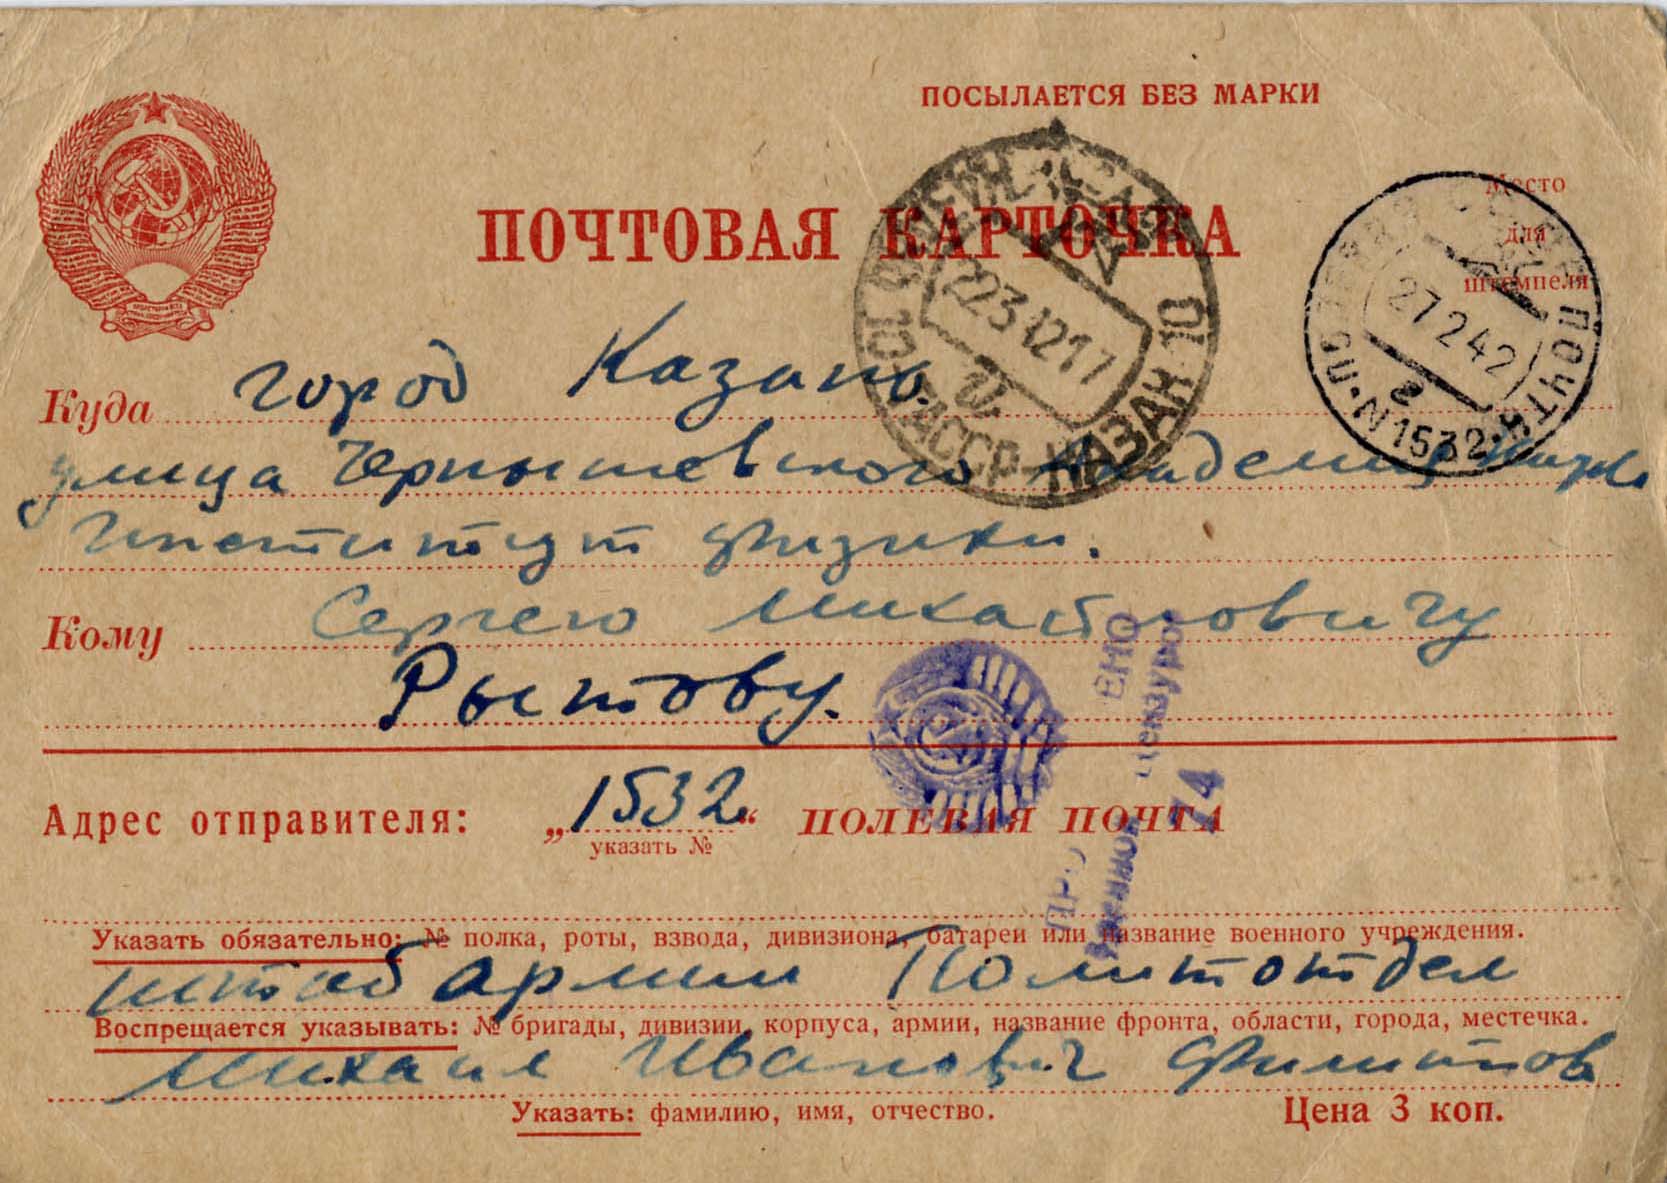 ПОСЫЛАЕТСЯ БЕЗ МАРКИ
ПОЧТОВАЯ КАРТОЧКА
Место
для
штемпеля
27 2 42
N 1532
ТАССР КАЗАНЬ 10
Куда город Казань.
улица Чернышевского Академия Наук
Институт физики.
Кому Сергею Михайловичу
Рытову.
Адрес отправителя: „1532“ ПОЛЕВАЯ ПОЧТА
указать №
Военной Цензурой
74
Указать обязательно: № полка, роты, взвода, дивизиона, батареи или название военного учреждения.
штаб армии Политотдел
Воспрещается указывать: № бригады, дивизии, корпуса, армии, название фронта, области, города, местечка.
Михаил Иванович Филиппов
Указать: фамилию, имя, отчество.
Цена 3 коп.